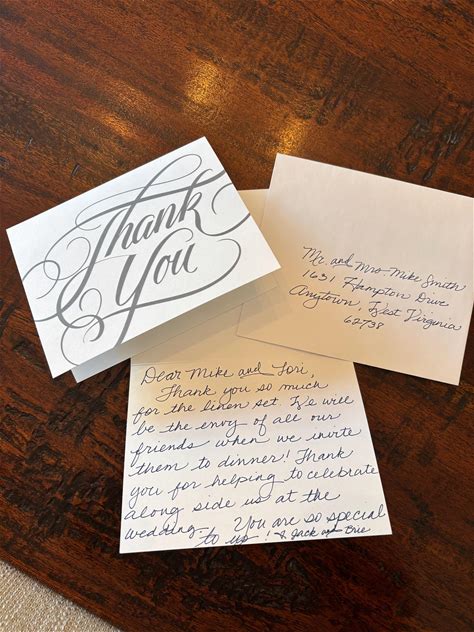 Thank
You
Mr. and Mrs. Mike Smith
1631 Hampton Drive
Anytown, West Virginia
62738
Dear Mike and Lori,
Thank you so much
for the linen set. We will
be the envy of all our
friends when we invite
them to dinner! Thank
you for helping to celebrate
along side us at the
wedding. You are so special
to us! Jack and Brie